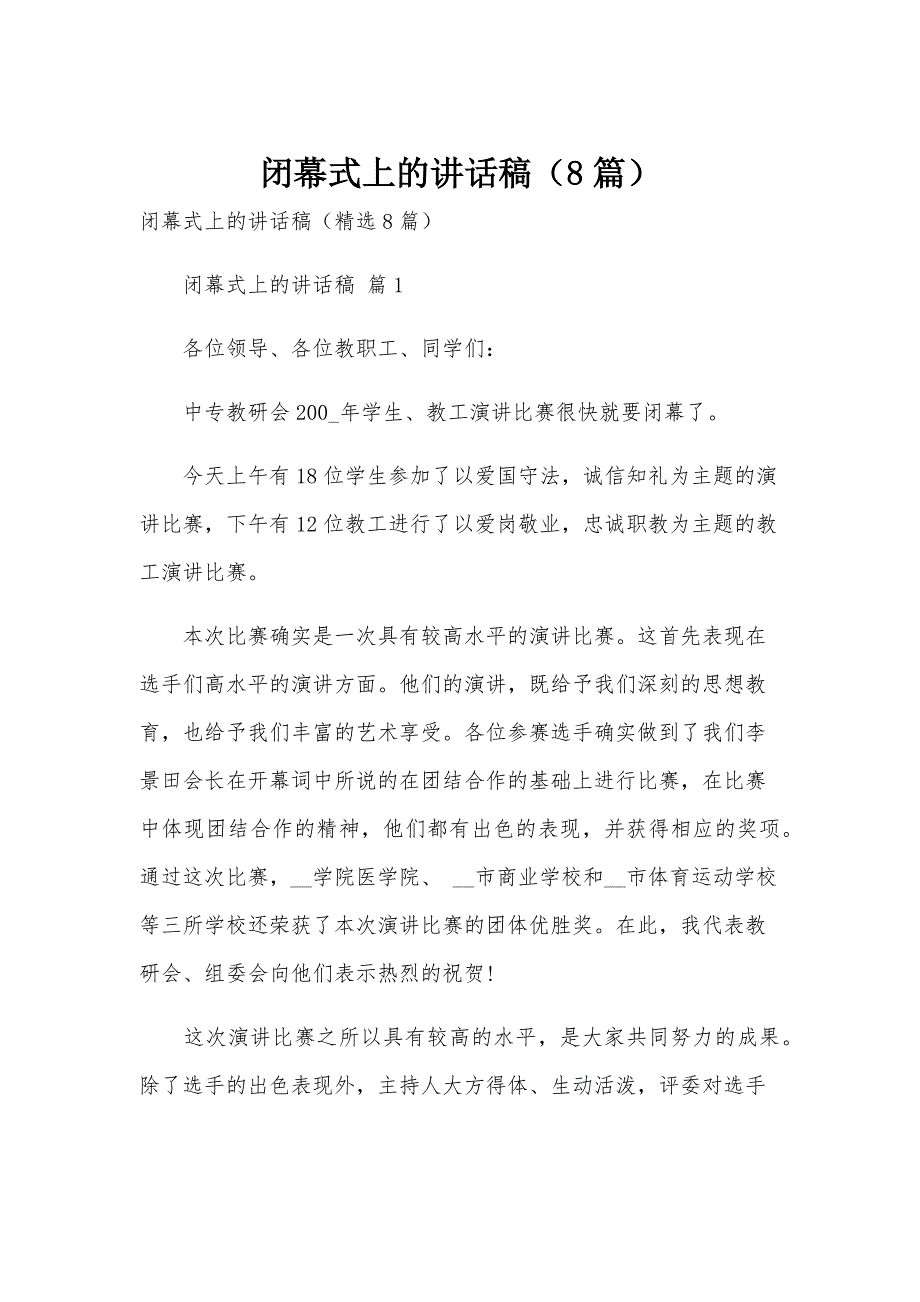 闭幕式上的讲话稿（8 篇）
闭幕式上的讲话稿（精选 8 篇）
闭幕式上的讲话稿 篇 1
各位领导、各位教职工、同学们：
中专教研会 200_年学生、教工演讲比赛很快就要闭幕了。
今天上午有 18 位学生参加了以爱国守法，诚信知礼为主题的演
讲比赛，下午有 12 位教工进行了以爱岗敬业，忠诚职教为主题的教
工演讲比赛。
本次比赛确实是一次具有较高水平的演讲比赛。这首先表现在
选手们高水平的演讲方面。他们的演讲，既给予我们深刻的思想教
育，也给予我们丰富的艺术享受。各位参赛选手确实做到了我们李
景田会长在开幕词中所说的在团结合作的基础上进行比赛，在比赛
中体现团结合作的精神，他们都有出色的表现，并获得相应的奖项。
通过这次比赛，__学院医学院、 __市商业学校和__市体育运动学校
等三所学校还荣获了本次演讲比赛的团体优胜奖。在此，我代表教
研会、组委会向他们表示热烈的祝贺!
这次演讲比赛之所以具有较高的水平，是大家共同努力的成果。
除了选手的出色表现外，主持人大方得体、生动活泼，评委对选手